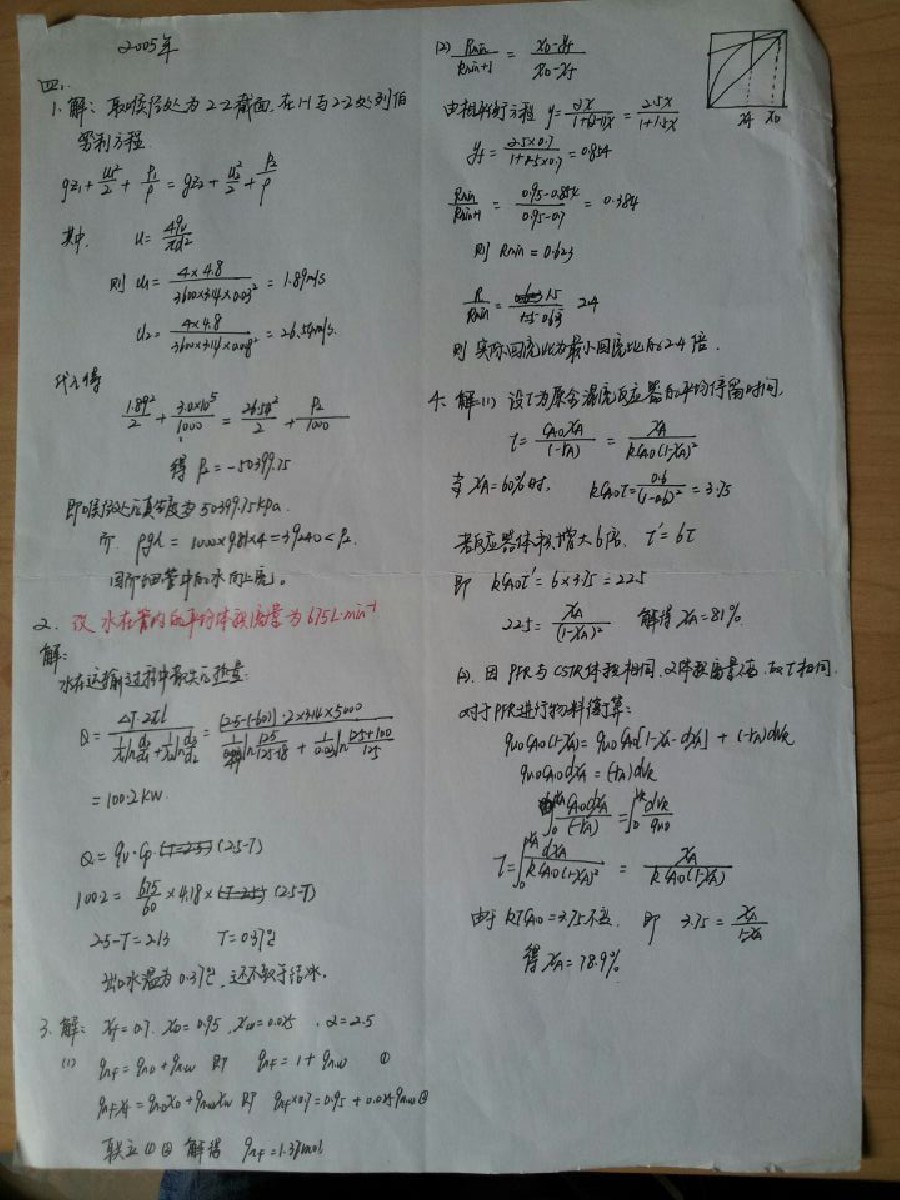 2005年
四、
1、解：取喉径处为2-2截面，在1-1与2-2处列伯
努利方程
gz₁ + u₁²/2 + p₁/ρ = gz₂ + u₂²/2 + p₂/ρ
其中, u = 4qv/πd²
则 u₁ = 4×4.8/3600×3.14×0.03² = 1.89m/s
u₂ = = 26.54m/s.
代入得
1.89²/2 + 3.0×10⁵/1000 = 26.54²/2 + p₂/1000
得 p₂ = -50399.75
即喉径处的真空度为50399.75kPa.
而 ρgh = 1000×9.81×4 = 39240 < p₂.
因而 管中的水向上流。
2. 设 水在管内的平均体积流量为675L·min⁻¹
解：
水在运输过程中散失的热量:
Q = = [2.5-(-60)]·2×3.14×5000
= 100.2kW.
Q = qv·Cp (2.5-T)
100.2 = 675/60 ×4.18× (2.5-T)
2.5-T = 2.13 T=0.37℃
出口水温为0.37℃, 还不致于结冰。
3、解： xf=0.7, xD=0.95, xw=0.025, α=2.5
(1) qnf = qnD + qnw 即 qnf = 1 + qnw ①
qnf xf = qnD xD + qnw xw 即 qnf×0.7 = 0.95 + 0.025qnw ②
联立①② 解得 qnf = 1.37kmol
(2) Rmin/Rmin+1 = xD-yf/xD-xf
xf xD
由相平衡方程 y = αx/1+(α-1)x = 2.5x/1+1.5x
yf = 2.5×0.7/1+1.5×0.7 = 0.854
Rmin/Rmin+1 = 0.95-0.854/0.95-0.7 = 0.384
则 Rmin = 0.623
R/Rmin = 2.4
则 实际回流比为最小回流比的2.4倍.
4、解：(1) 设τ为原全混流反应器的平均停留时间,
τ = CA0xA/(-rA) = xA/kCA0(1-xA)²
当xA=60%时, kCA0τ = 0.6/(1-0.6)² = 3.75
若反应器体积增大6倍, τ' = 6τ
即 kCA0τ' = 6×3.75 = 22.5
22.5 = xA/(1-xA)² 解得xA=81%.
(2). 因PFR与CSTR体积相同, 又体积流量不变, 故τ相同.
对于PFR进行物料衡算:
qv0CA0(1-xA) = qv0CA0[1-xA-dxA] + (-rA)dVR
qv0CA0dxA = (-rA)dVR
∫₀^xA CA0dxA/(-rA) = ∫₀^VR dVR/qv0
τ = ∫₀^xA dxA/kCA0(1-xA)² = xA/kCA0(1-xA)
由于 kτCA0 = 3.75不变, 即 3.75 = xA/1-xA
得 xA = 78.9%